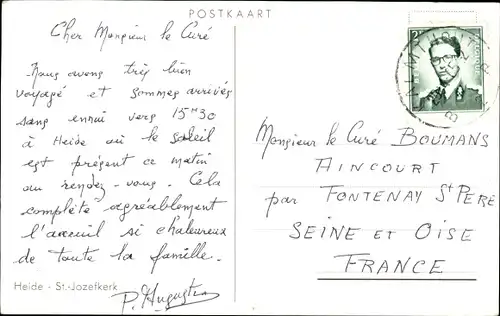 POSTKAART
Cher Monsieur le Curé
Nous avons très bien
voyagé et sommes arrivés
sans ennui vers 15H30
à Heide où le soleil
est présent ce matin
au rendez-vous. Cela
complète agréablement
l'accueil si chaleureux
de toute la famille.
P. Augustin
Heide - St.-Jozefkerk
2F
Monsieur le Curé BOUMANS
AINCOURT
par FONTENAY St PERE
SEINE et OISE
FRANCE